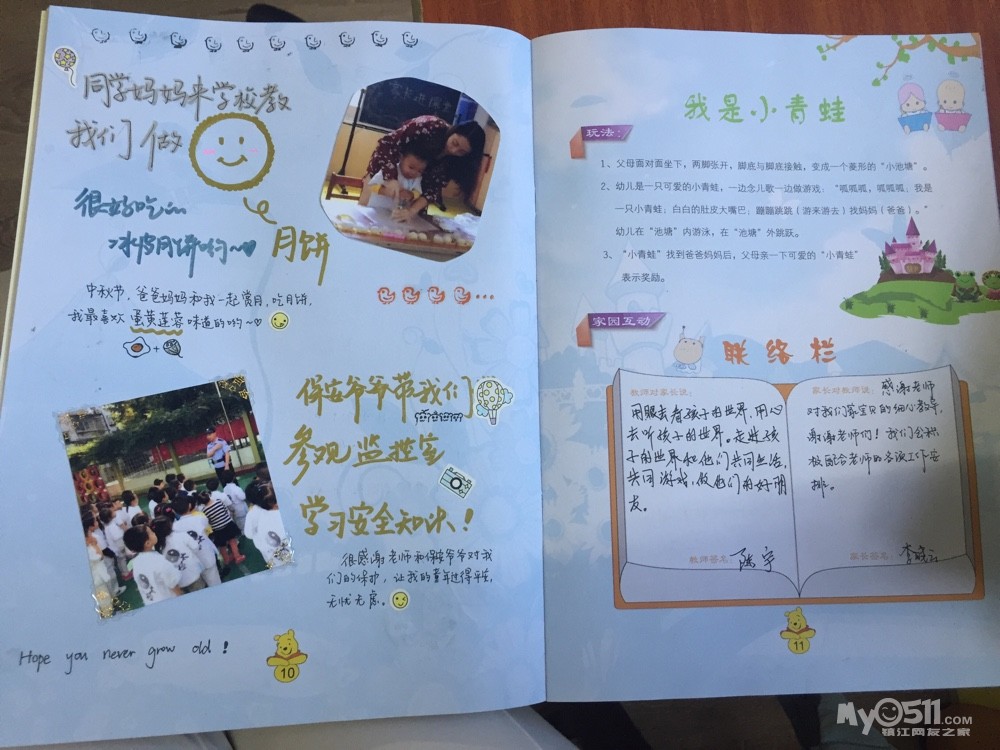 同学妈妈来学校教
我们做
月饼
很好吃
冰皮月饼哟~
中秋节，爸爸妈妈和我一起赏月，吃月饼，
我最喜欢蛋黄莲蓉味道的哟~
+
保安爷爷带我们
参观监控室
学习安全知识！
很感谢老师和保安爷爷对我
们的保护，让我的童年过得平安，
无忧无虑。
Hope you never grow old!
10
我是小青蛙
玩法：
1、父母面对面坐下，两脚张开，脚底与脚底接触，变成一个菱形的“小池塘”。
2、幼儿是一只可爱的小青蛙，一边念儿歌一边做游戏：“呱呱呱，呱呱呱；我是
一只小青蛙；白白的肚皮大嘴巴；蹦蹦跳跳（游来游去）找妈妈（爸爸）。”
幼儿在“池塘”内游泳，在“池塘”外跳跃。
3、“小青蛙”找到爸爸妈妈后，父母亲一下可爱的“小青蛙”
表示奖励。
家园互动
联络栏
教师对家长说：
用眼去看孩子的世界，用心
去听孩子的世界。走进孩
子的世界和他们共同生活，
共同游戏，做他们的好朋
友。
教师签名：陆宇
家长对教师说：感谢老师
对我们家宝贝的细心教导，
谢谢老师们！我们会积
极配合老师的各项工作安
排。
家长签名：李
11
My0511.COM
镇江网友之家